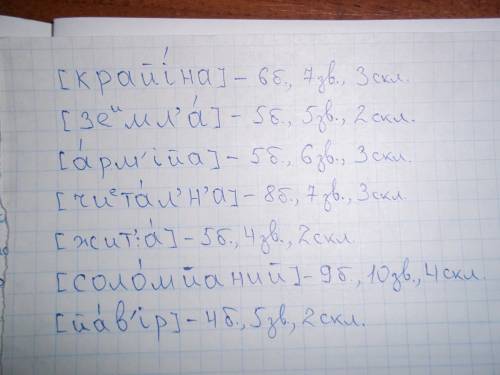 [крайíна] – 6б., 7зв., 3скл.
[зеᶦмл'á] – 5б., 5зв., 2скл.
[áрм'ійа] – 5б., 6зв., 3скл.
[чиᵉтáл'н'а] – 8б., 7зв., 3скл.
[жит':á] – 5б., 4зв., 2скл.
[солóмйаний] – 9б., 10зв., 4скл.
[йáв'ір] – 4б., 5зв., 2скл.